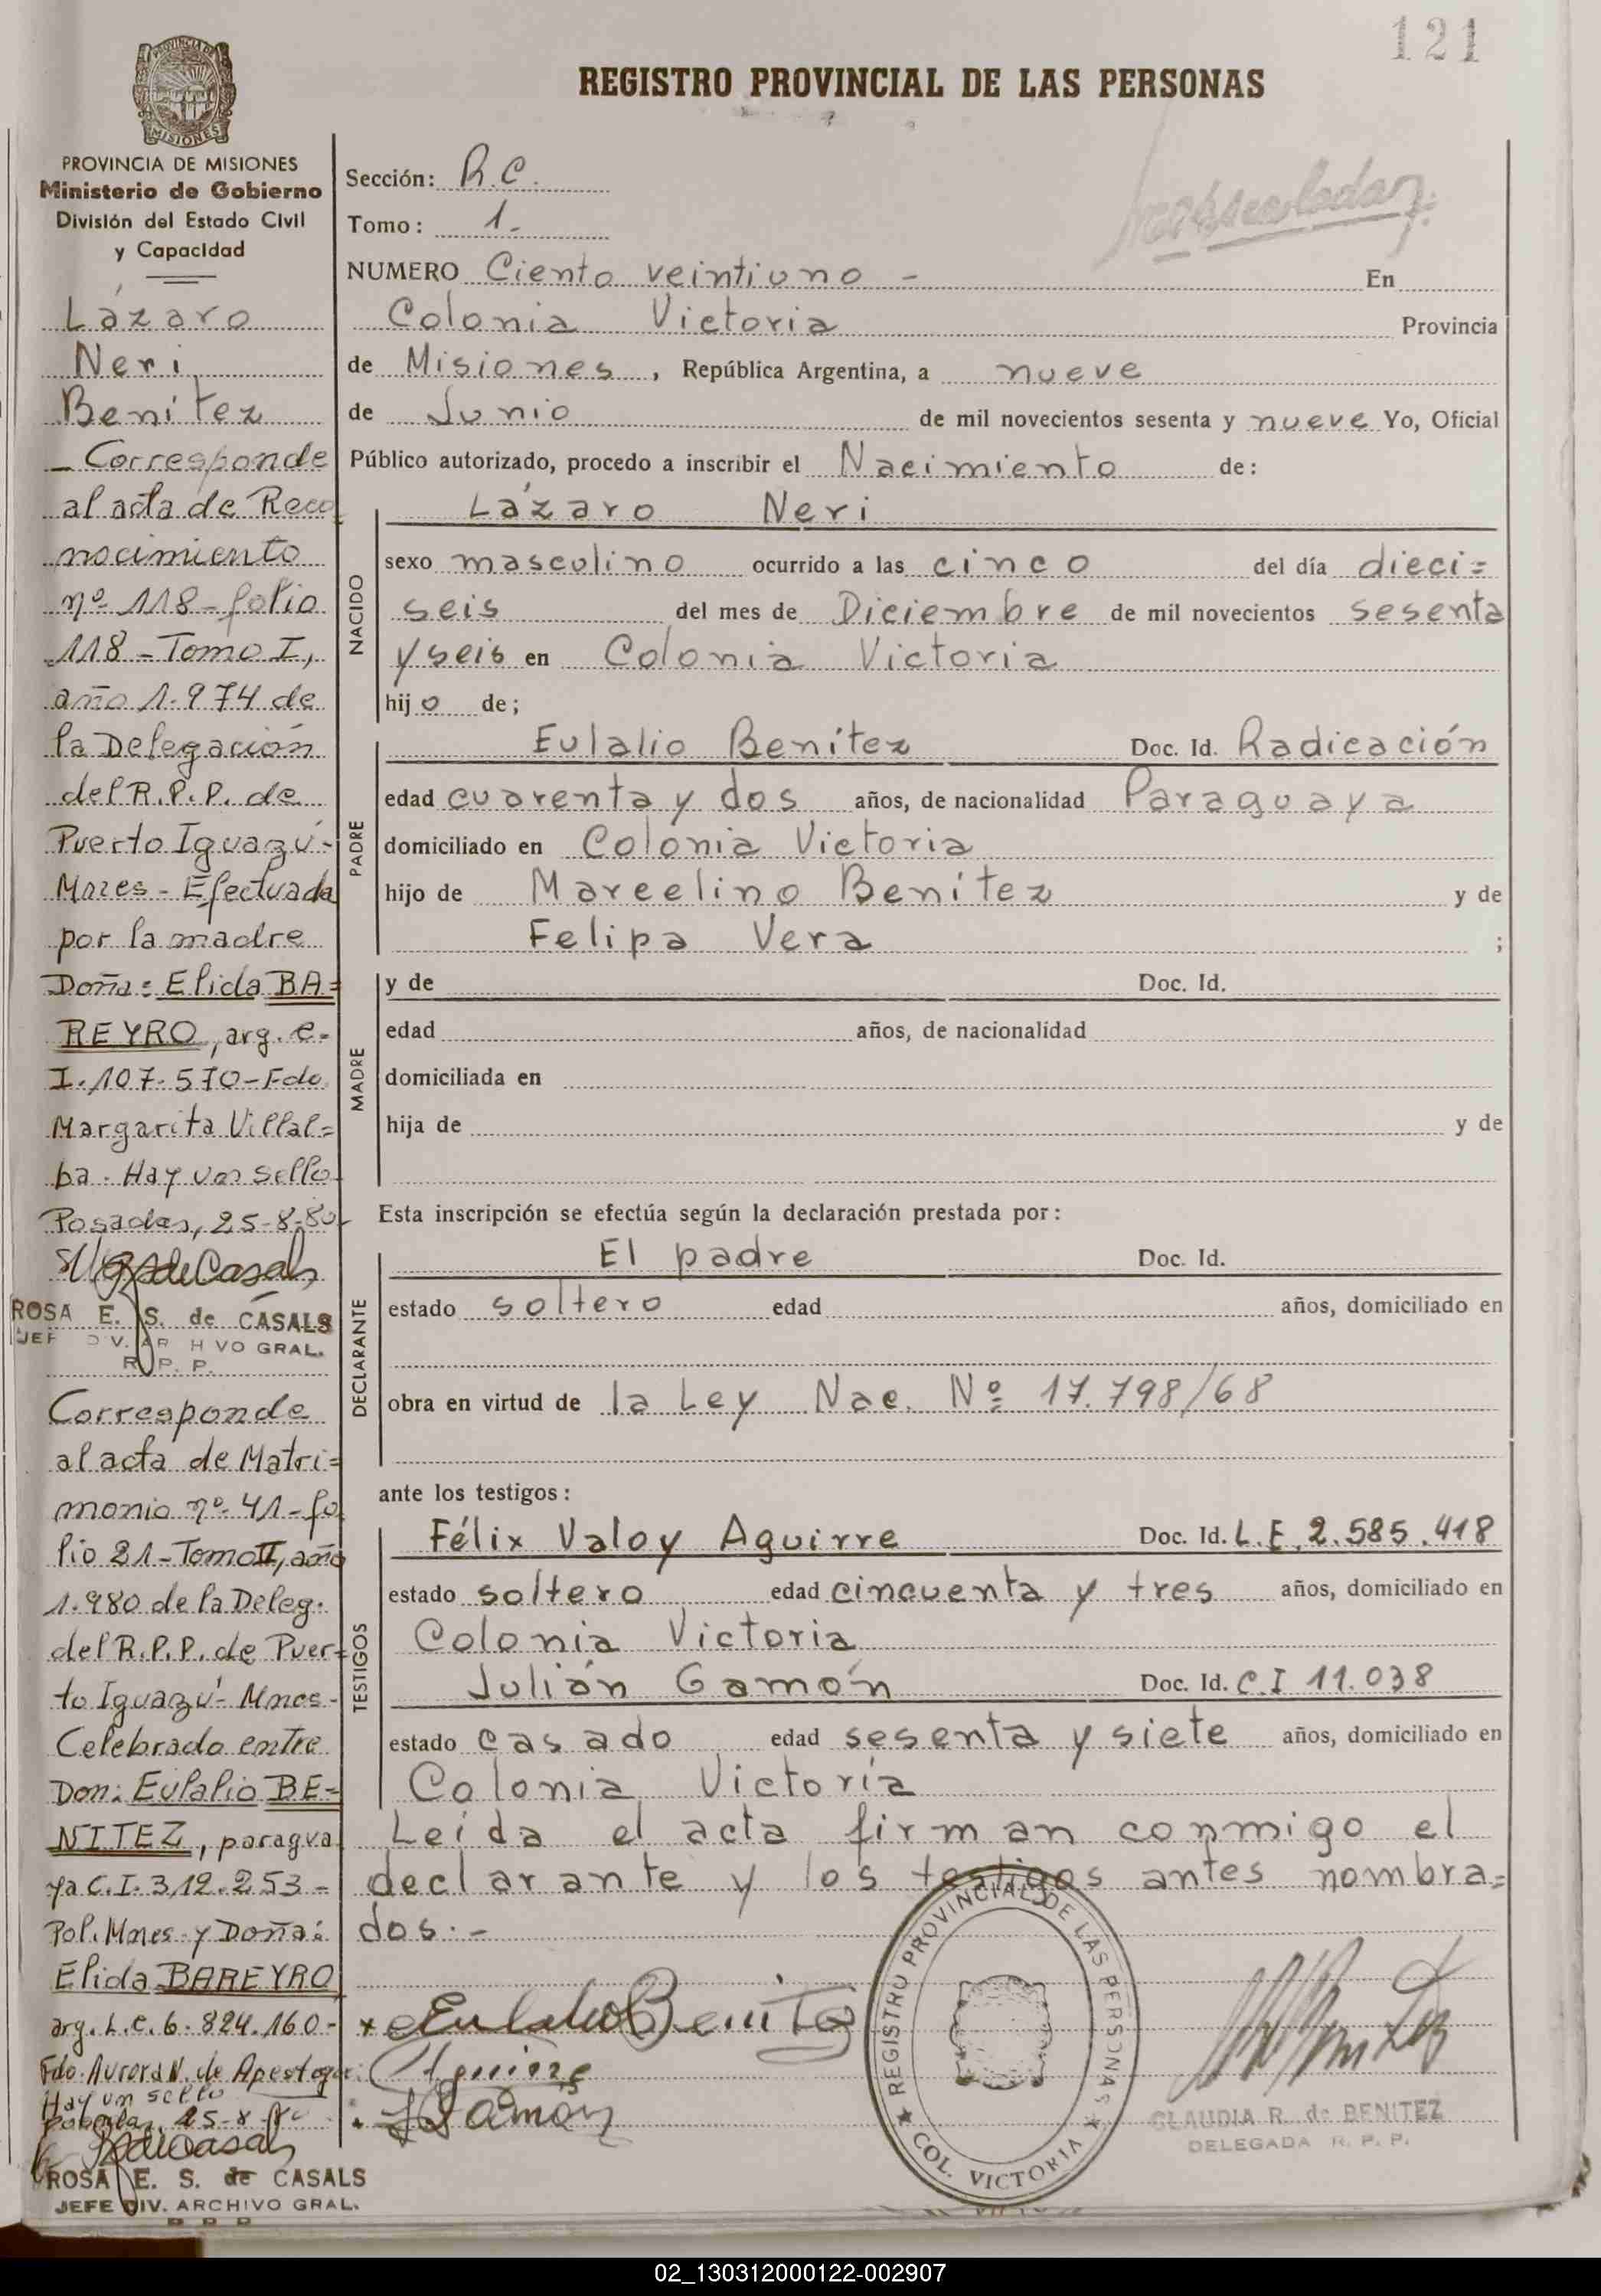 121
PROVINCIA DE
MISIONES
REGISTRO PROVINCIAL DE LAS PERSONAS
PROVINCIA DE MISIONES
Ministerio de Gobierno
División del Estado Civil
y Capacidad
Lázaro
Neri
Benítez
_ Corresponde
al acta de Reco
nocimiento
nº 118 - folio
118 - Tomo I,
año 1.974 de
la Delegación
del R.P.P. de
Puerto Iguazú -
Mnes - Efectuada
por la madre
Doña: Elida BA=
REYRO, arg. C.
I. 107.570 - Fdo.
Margarita Villal=
ba. Hay un sello
Posadas, 25-8-80
ROSA E. S. de CASALS
JEF DIV. AR HVO GRAL.
R. P. P.
Corresponde
al acta de Matri=
monio nº 41 - fo
lio 21 - Tomo II, año
1.980 de la Deleg.
del R.P.P. de Puer=
to Iguazú - Mnes -
Celebrado entre
Don: Eulalio BE=
NITEZ, paragua
ya C.I. 312.253 -
Pol. Mnes y Doña:
Elida BAREYRO
arg. L.C. 6.824.160 -
Fdo. Aurora N. de
Hay un sello
Posadas, 25-8-80
ROSA E. S. de CASALS
JEFE DIV. ARCHIVO GRAL.
R. P. P.
Sección: R.C.
Tomo: 1.
NUMERO Ciento veintiuno - En
Colonia Victoria Provincia
de Misiones, República Argentina, a nueve
de Junio de mil novecientos sesenta y nueve Yo, Oficial
Público autorizado, procedo a inscribir el Nacimiento de:
NACIDO
Lázaro Neri
sexo masculino ocurrido a las cinco del día dieci=
seis del mes de Diciembre de mil novecientos sesenta
y seis en Colonia Victoria
hijo de;
PADRE
Eulalio Benítez Doc. Id. Radicación
edad cuarenta y dos años, de nacionalidad Paraguaya
domiciliado en Colonia Victoria
hijo de Marcelino Benítez y de
Felipa Vera ;
MADRE
y de Doc. Id.
edad años, de nacionalidad
domiciliada en
hija de y de
Esta inscripción se efectúa según la declaración prestada por:
DECLARANTE
El padre Doc. Id.
estado soltero edad años, domiciliado en
obra en virtud de la Ley Nac. Nº 17.798/68
ante los testigos:
TESTIGOS
Félix Valoy Aguirre Doc. Id. L.E. 2.585.418
estado soltero edad cincuenta y tres años, domiciliado en
Colonia Victoria
Julián Gamón Doc. Id. C.I 11.038
estado casado edad sesenta y siete años, domiciliado en
Colonia Victoria
Leída el acta firman conmigo el
declarante y los testigos antes nombra=
dos.-
Eulalio Benitez
Aguirre
J Gamón
REGISTRO PROVINCIAL DE LAS PERSONAS
COL. VICTORIA
CLAUDIA R. de BENITEZ
DELEGADA R. P. P.
02_130312000122-002907